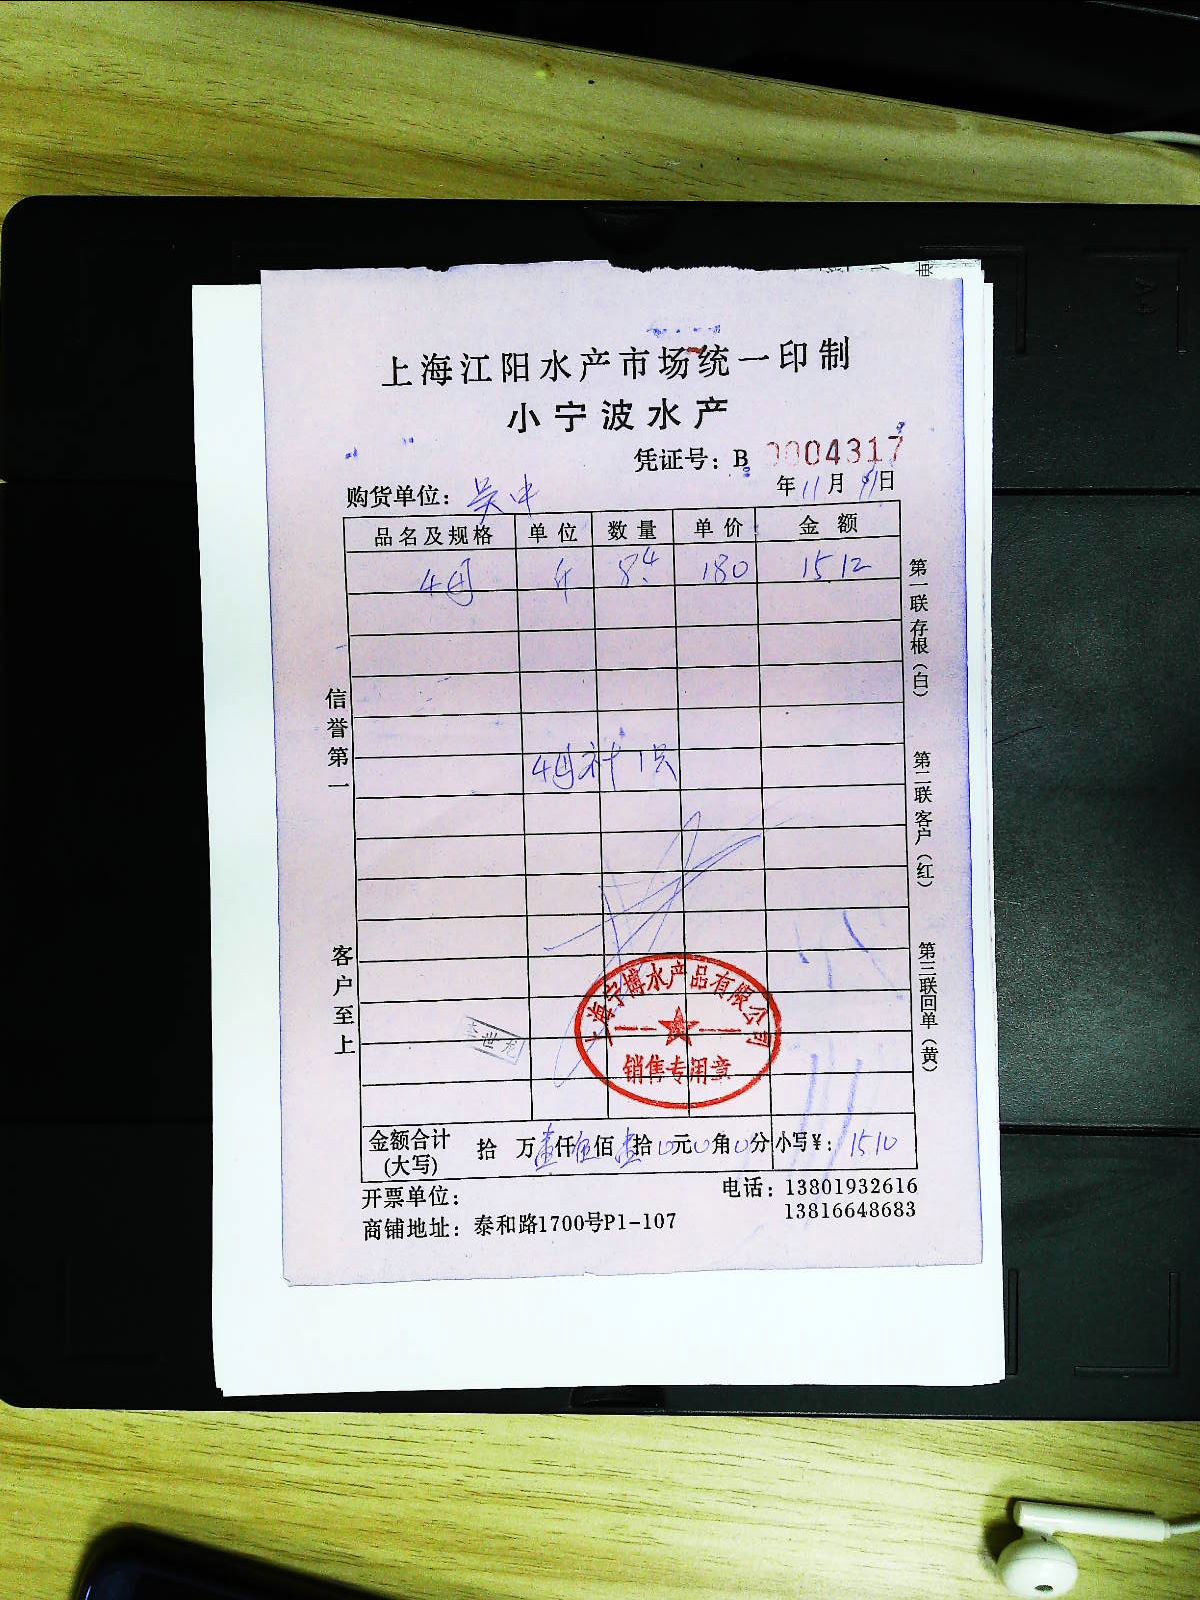 上海江阳水产市场统一印制
小宁波水产
凭证号：B 0004317
购货单位：吴中 年11月11日
品名及规格 单位 数量 单价 金额
4母 斤 8.4 180 1512
4母补1只
信誉第一
客户至上
第一联存根（白）
第二联客户（红）
第三联回单（黄）
上海宁博水产品有限公司
销售专用章
世龙
金额合计 拾 万壹仟伍佰壹拾0元0角0分 小写¥：1510
(大写)
开票单位： 电话：13801932616
13816648683
商铺地址：泰和路1700号P1-107